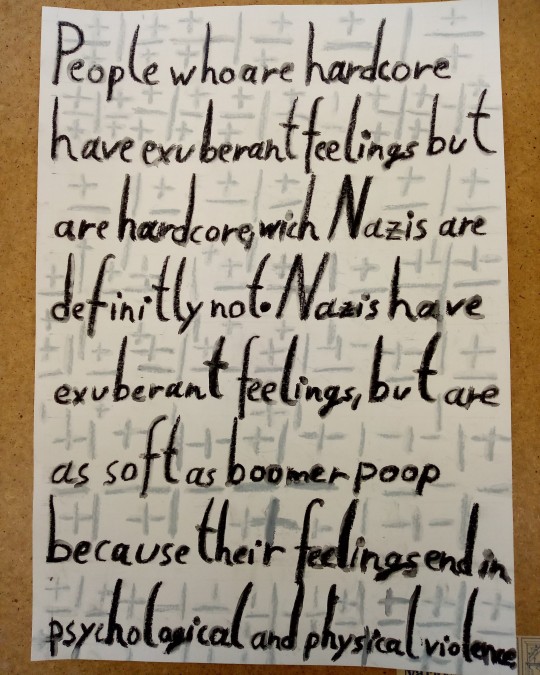 People who are hardcore
have exuberant feelings but
are hardcore, wich Nazis are
definitly not. Nazis have
exuberant feelings, but are
as soft as boomer poop
because their feelings end in
psychological and physical violence